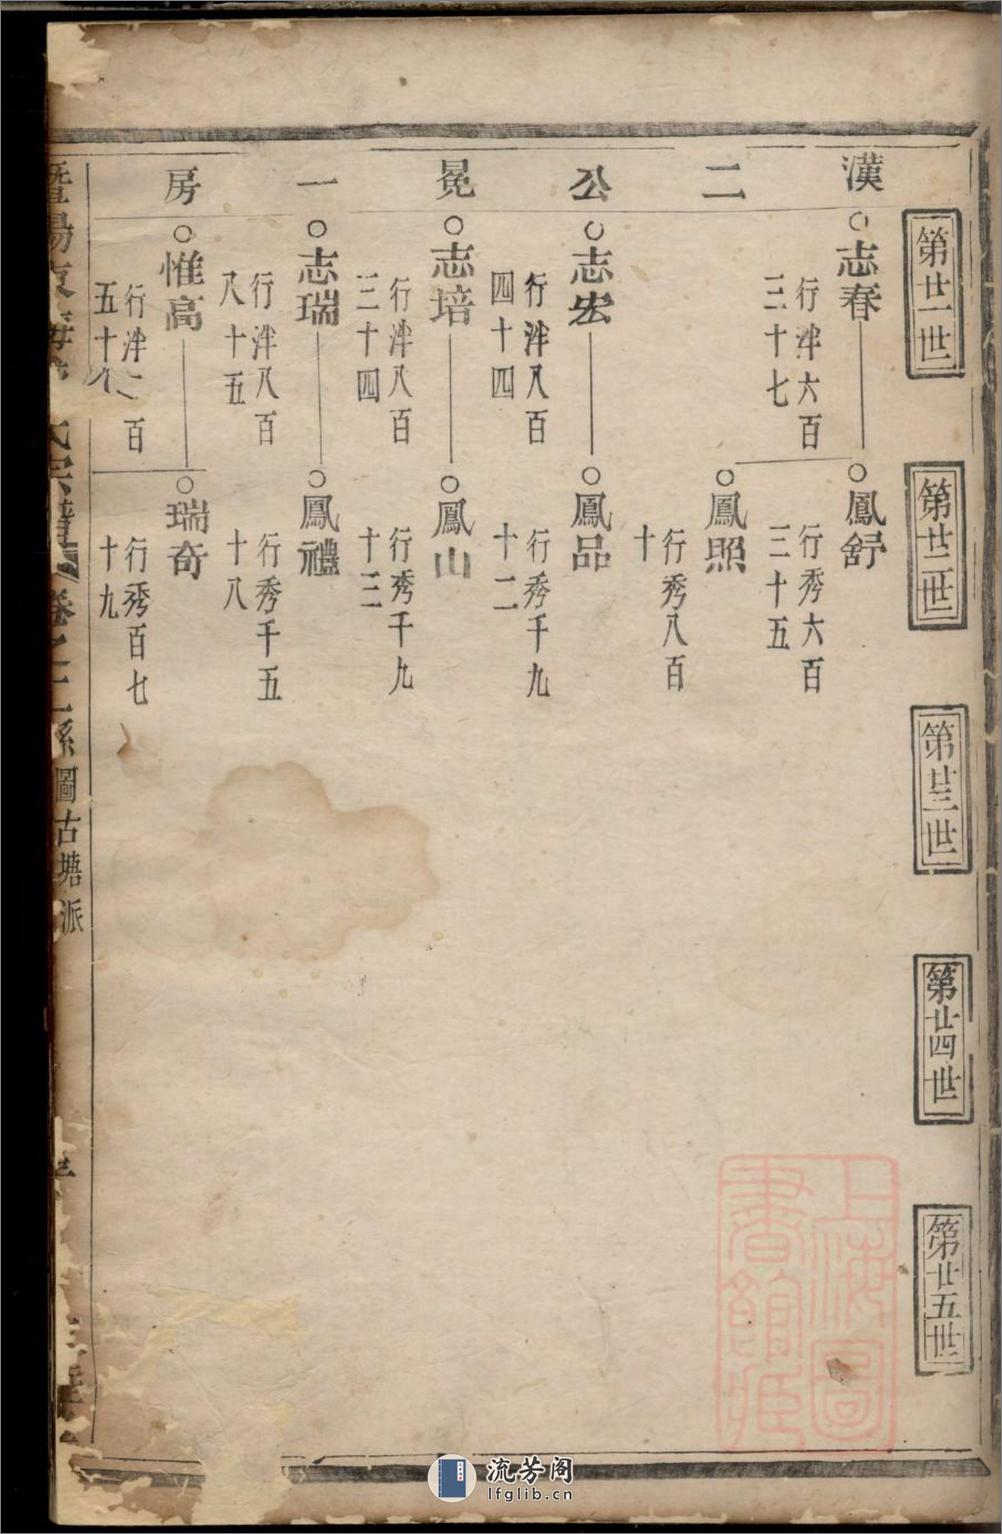 漢二公冕一房
第廿一世
第廿二世
第廿三世
第廿四世
第廿五世
志春
行泮六百
三十七
鳳舒
行秀六百
三十五
鳳照
行秀八百
十
志宏
行泮八百
四十四
鳳品
行秀千九
十二
志培
行泮八百
三十四
鳳山
行秀千九
十三
志瑞
行泮八百
八十五
鳳禮
行秀千五
十八
惟高
百
五十
瑞奇
行秀百七
十九
暨陽
宗譜
卷之
系圖古塘派
上海圖書館藏
流芳阁
lfglib.cn